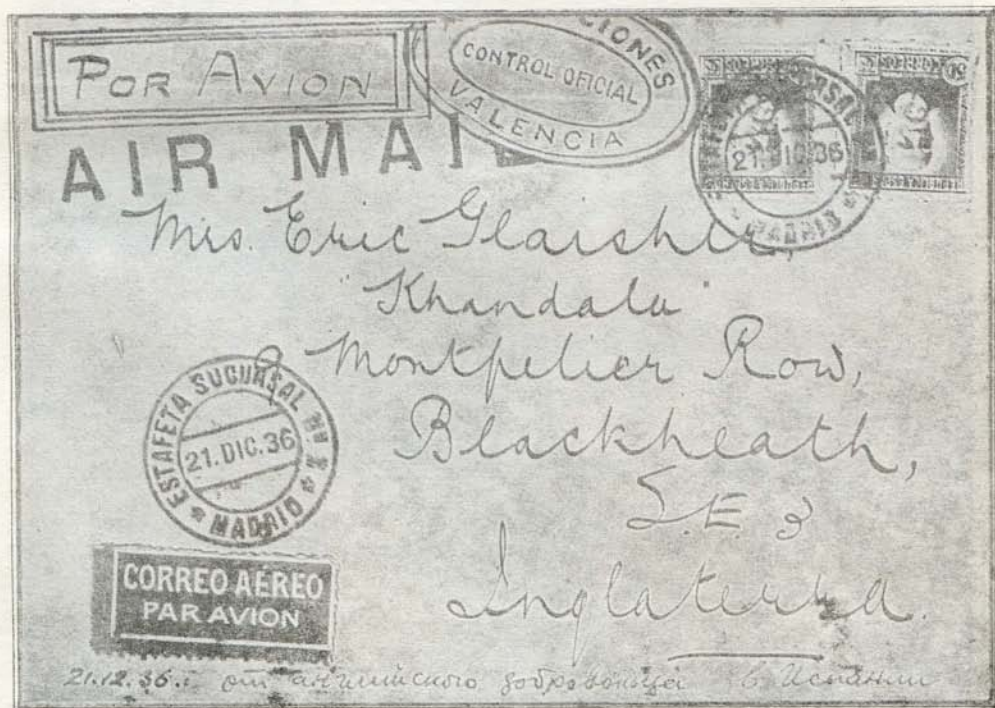 POR AVION
AIR MAIL
CIONES
CONTROL OFICIAL
VALENCIA
21. DIC. 36
MADRID
CORREOS
50
Mrs. Eric Glaisher,
"Khandala"
Montpelier Row,
Blackheath,
S.E. 3
Inglaterra.
ESTAFETA SUCURSAL Nº 2
21. DIC. 36
MADRID
CORREO AÉREO
PAR AVION
21.12.36. от английского добровольца в Испании